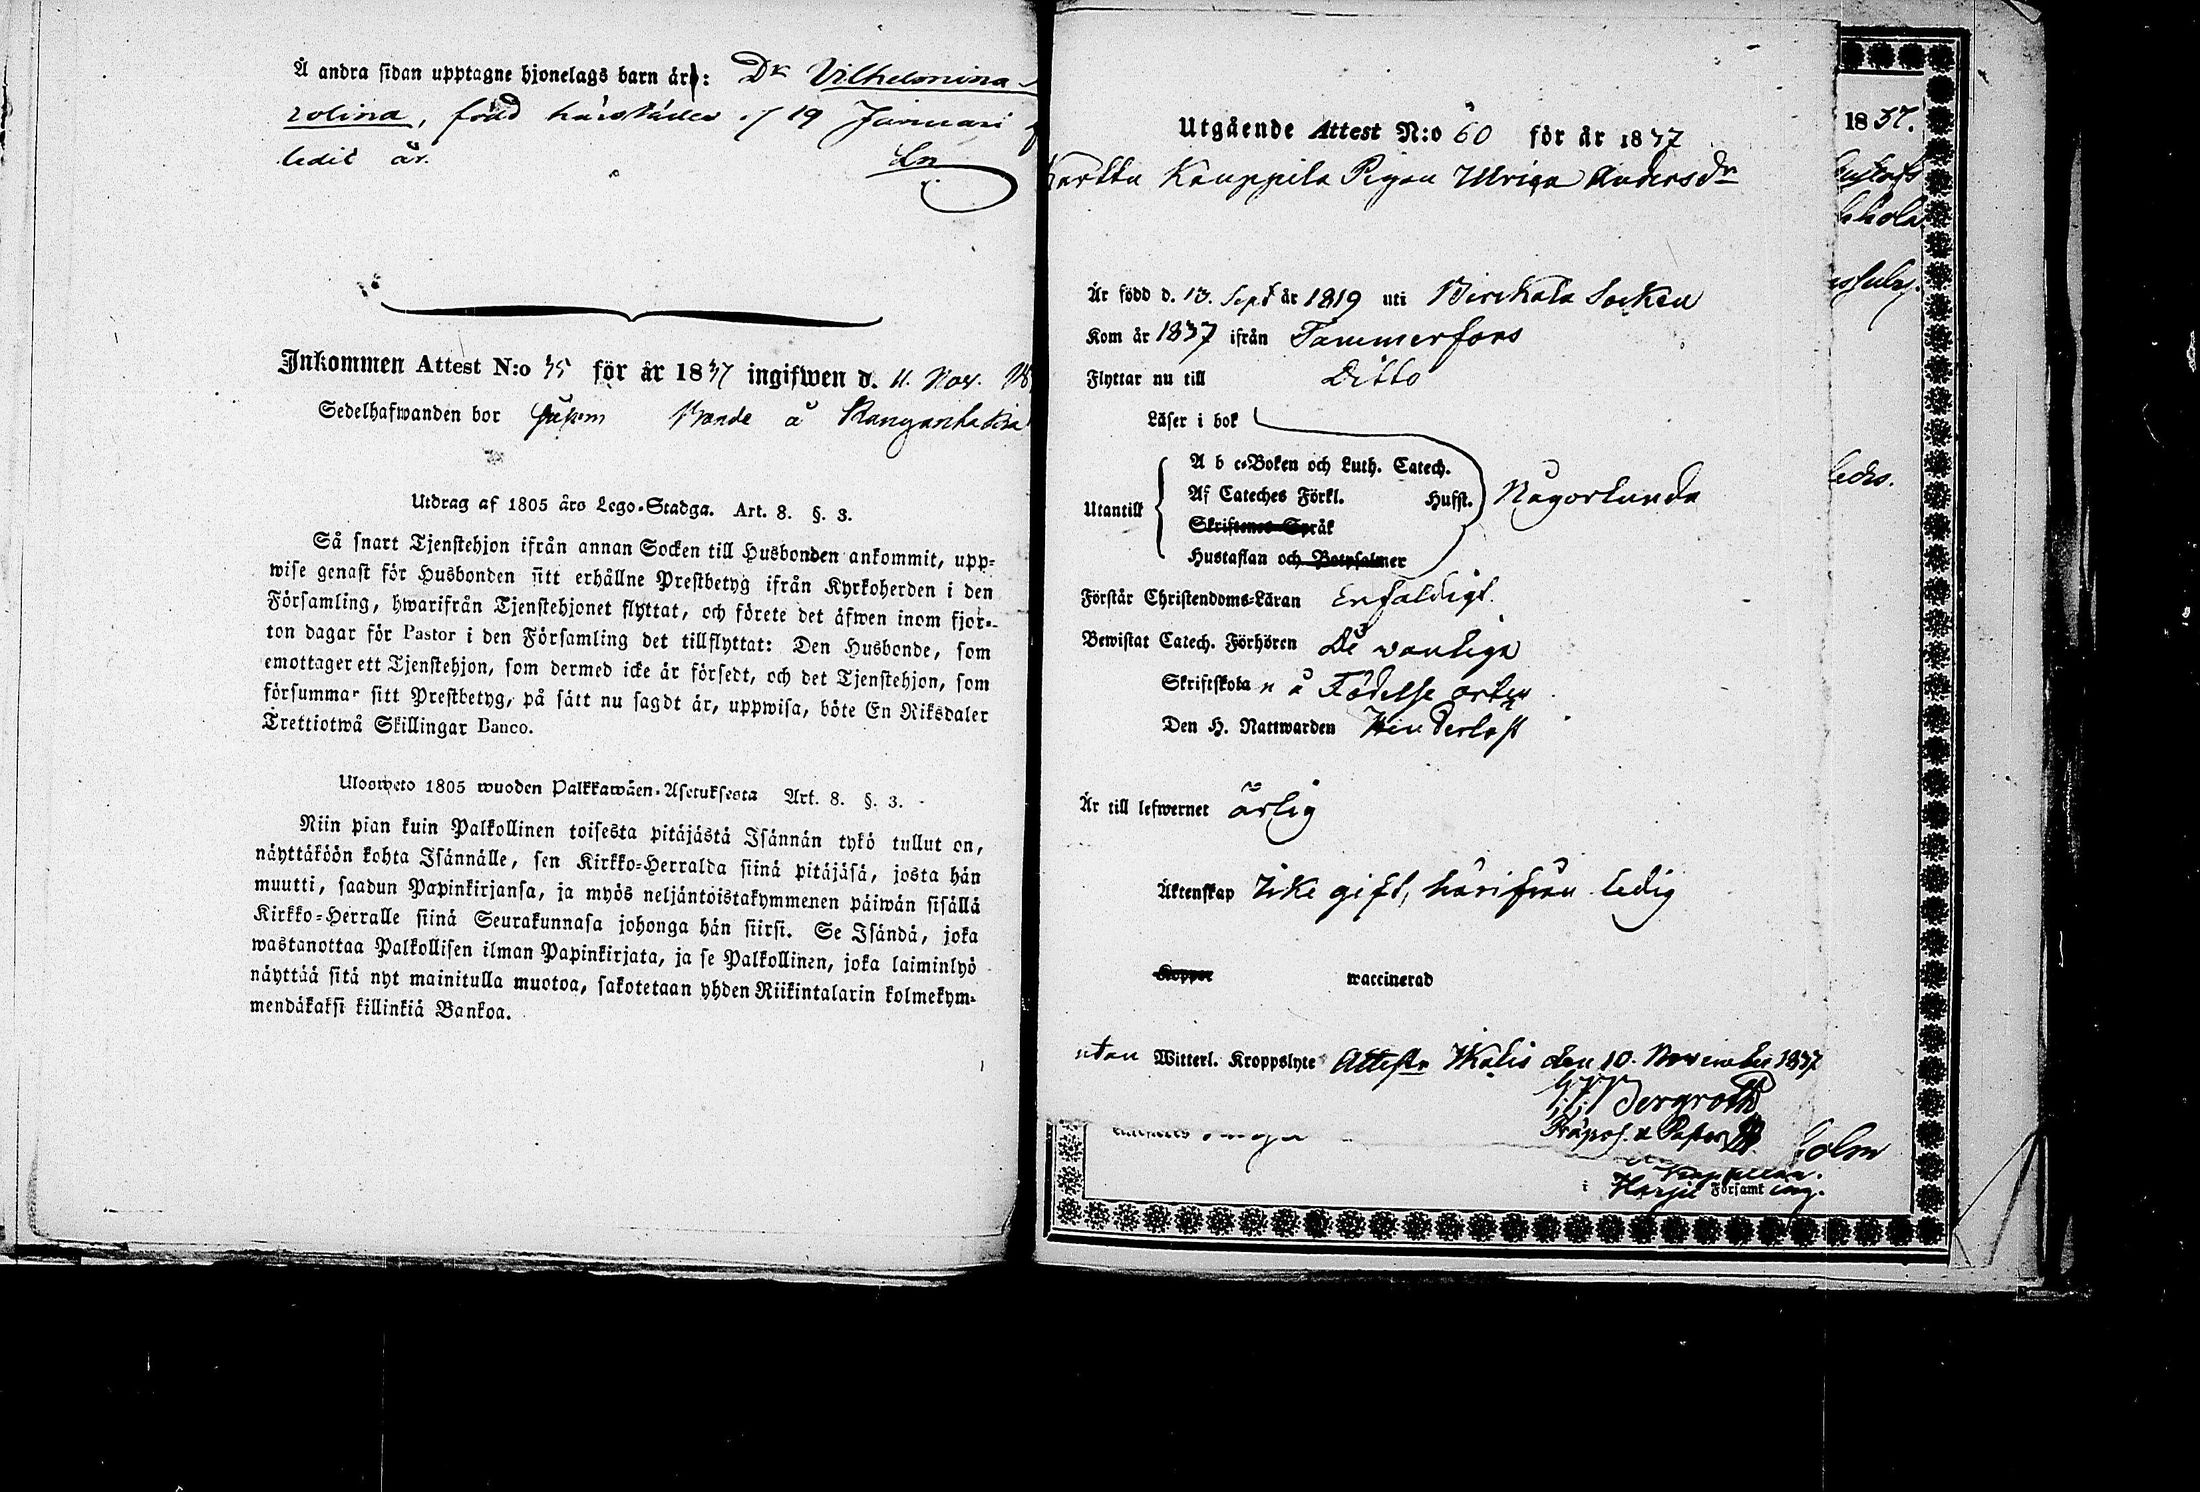 Å andra sidan upptagne hjonelags barn är: Dr Vilhelmina
rolina, född härstädes d. 19 Januari
ledit år.
Inkommen Attest N:o 35 för år 1837 ingifwen d. 11. Nov.
Sedelhafwanden bor Bonde å
Utdrag af 1805 års Lego-Stadga. Art. 8. §. 3.
Så snart Tjenstehjon ifrån annan Socken till Husbonden ankommit, upp-
wise genast för Husbonden sitt erhållne Prestbetyg ifrån Kyrkoherden i den
Församling, hwarifrån Tjenstehjonet flyttat, och förete det äfwen inom fjor-
ton dagar för Pastor i den Församling det tillflyttat: Den Husbonde, som
emottager ett Tjenstehjon, som dermed icke är försedt, och det Tjenstehjon, som
försummar sitt Prestbetyg, på sätt nu sagdt är, uppwisa, böte En Riksdaler
Trettiotwå Skillingar Banco.
Ulosweto 1805 wuoden Palkkawäen-Asetuksesta Art. 8. §. 3.
Niin pian kuin Palkollinen toisesta pitäjästä Isännän tykö tullut on,
näyttäköön kohta Isännälle, sen Kirkko-Herralda siinä pitäjäsä, josta hän
muutti, saadun Papinkirjansa, ja myös neljäntoistakymmenen päiwän sisällä
Kirkko-Herralle siinä Seurakunnasa johonga hän siirsi. Se Isändä, joka
wastanottaa Palkollisen ilman Papinkirjata, ja se Palkollinen, joka laiminlyö
näyttää sitä nyt mainitulla muotoa, sakotetaan yhden Riikintalarin kolmekym-
mendäkaksi killinkiä Bankoa.
Utgående Attest N:o 60 för år 1837
Karttu Kauppila Pigan Ulrica Andersdr
Är född d. 13. Sept år 1819 uti Birckala Socken
Kom år 1837 ifrån Tammerfors
Flyttar nu till Ditto
Läser i bok
A b c-Boken och Luth. Catech.
Utantill Af Cateches Förkl. Hufst. Någorlunda
Skriftenes Språk
Hustaflan och Botpsalmer
Förstår Christendoms-Läran Enfaldigt.
Bewistat Catech. Förhören De wanliga
Skriftskolan å Födelse orten
Den H. Nattwarden Hinderlöst
Är till lefwernet ärlig
Äktenskap Icke gift, härifrån ledig
Koppor waccinerad
utan Witterl. Kroppslyte Attestr Ikalis den 10. November 1837
Bergroth
Præpos. & Pastor
1837.
Gustafs
holm
Kapellan.
i Harju Församling.